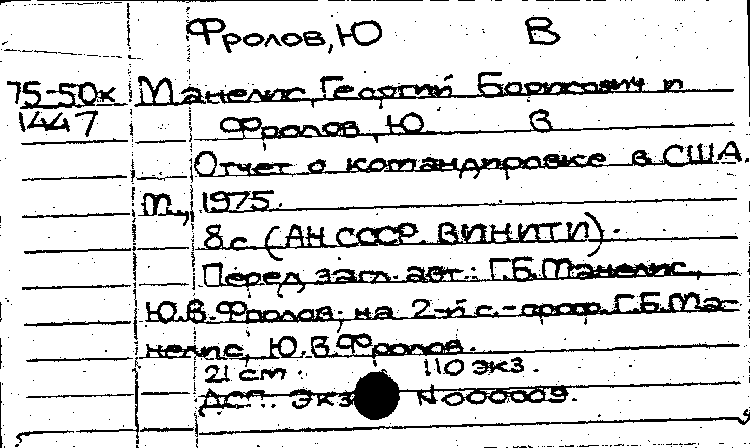 Фролов, Ю В
75-50к Манелис, Георгий Борисович и
1447 Фролов, Ю. В
Отчет о командировке в США.
М., 1975.
8 с. (АН СССР. ВИНИТИ).
Перед загл. авт.: Г.Б.Манелис,
Ю.В.Фролов; на 2-й с.-проф. Г.Б.Ма-
нелис, Ю.В.Фролов.
21 см. 110 экз.
ДСП. Экз N000009.